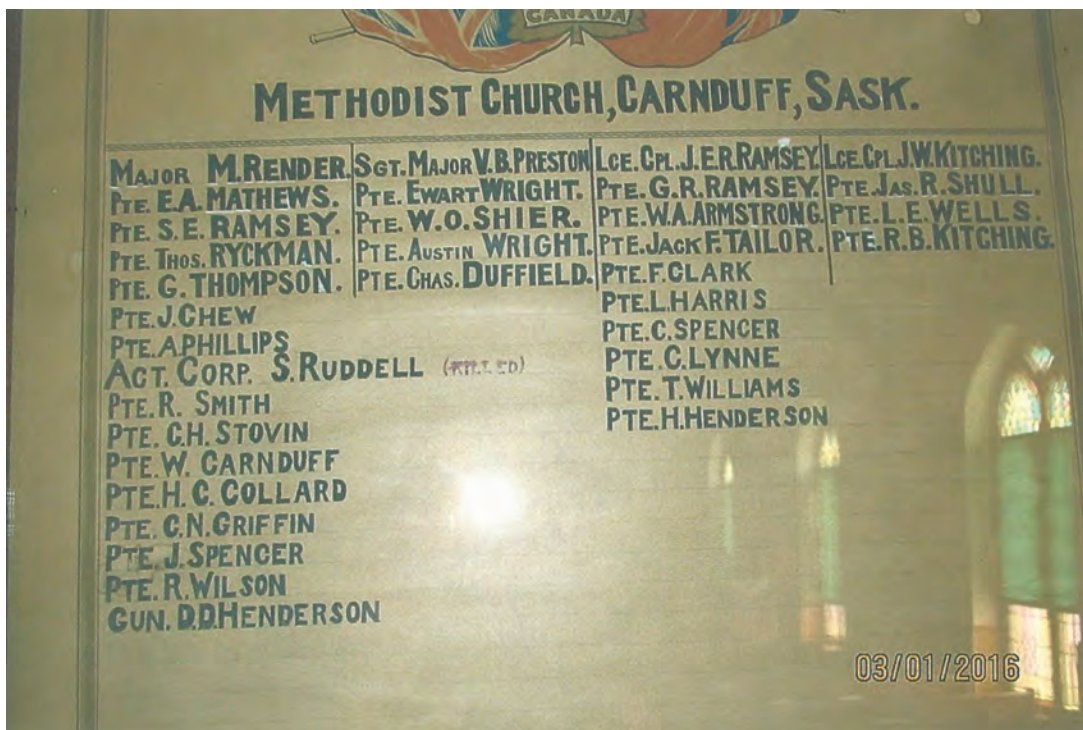 CANADA
METHODIST CHURCH, CARNDUFF, SASK.
MAJOR M. RENDER.
PTE. E.A. MATHEWS.
PTE. S.E. RAMSEY.
PTE. THOS. RYCKMAN.
PTE. G. THOMPSON.
PTE. J. CHEW
PTE. A PHILLIPS
ACT. CORP. S. RUDDELL (KILLED)
PTE. R. SMITH
PTE. C.H. STOVIN
PTE. W. CARNDUFF
PTE. H. C. COLLARD
PTE. C.N. GRIFFIN
PTE. J. SPENCER
PTE. R. WILSON
GUN. D.D. HENDERSON
SGT. MAJOR V.B. PRESTON
PTE. EWART WRIGHT.
PTE. W.O. SHIER.
PTE. AUSTIN WRIGHT.
PTE. CHAS. DUFFIELD.
LCE. CPL. J.E.R. RAMSEY.
PTE. G.R. RAMSEY.
PTE. W.A. ARMSTRONG.
PTE. JACK F. TAILOR.
PTE. F. CLARK
PTE. L. HARRIS
PTE. C. SPENCER
PTE. C. LYNNE
PTE. T. WILLIAMS
PTE. H. HENDERSON
LCE. CPL. J.W. KITCHING.
PTE. JAS. R. SHULL.
PTE. L.E. WELLS.
PTE. R.B. KITCHING.
03/01/2016